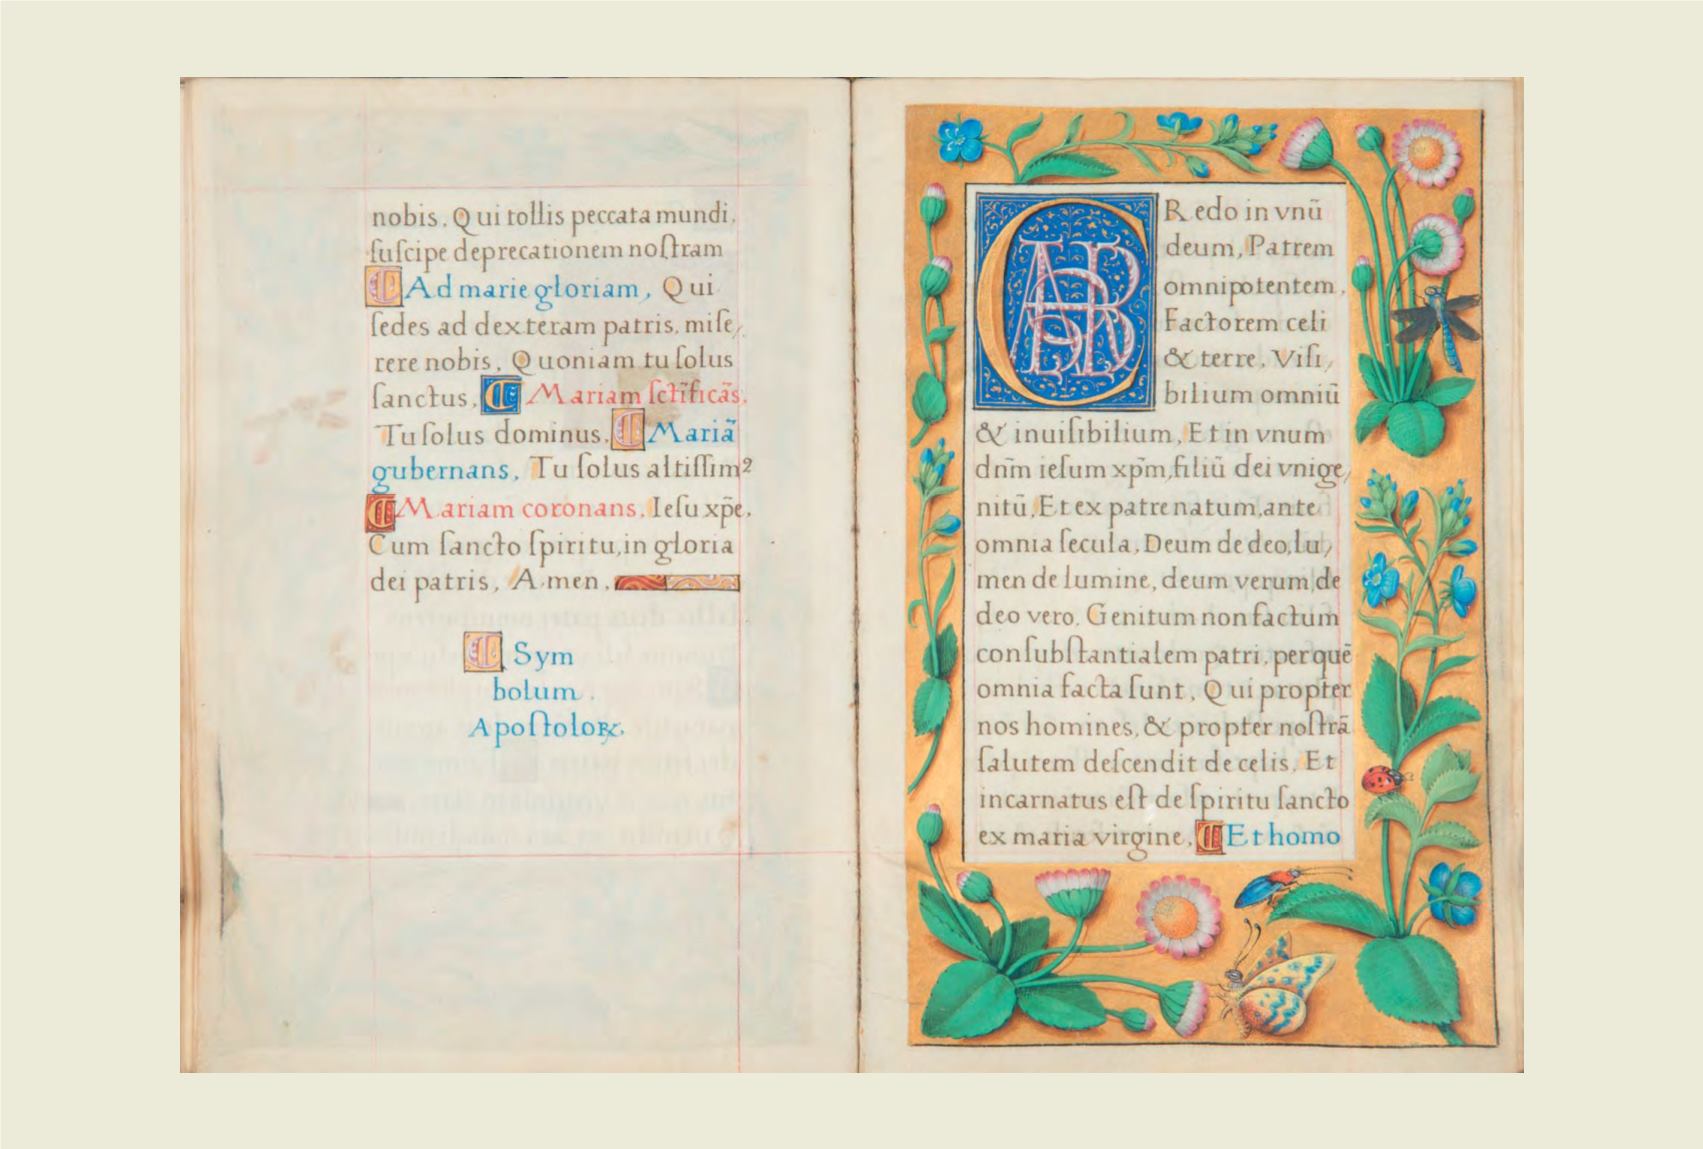 nobis. Qui tollis peccata mundi,
ſuſcipe deprecationem noſtram
Ad marie gloriam, Qui
ſedes ad dexteram patris, miſe,
rere nobis, Quoniam tu ſolus
ſanctus, Mariam ſct̃ificãs,
Tu ſolus dominus, Mariã
gubernans, Tu ſolus altiſſimꝰ
Mariam coronans, Ieſu xp̃e,
Cum ſancto ſpiritu, in gloria
dei patris, Amen.
Sym
bolum.
Apoſtoloꝝ.
CRedo in vnũ
deum, Patrem
omnipotentem,
Factorem celi
& terre, Viſi,
bilium omniũ
& inuiſibilium, Et in vnum
dnm̃ ieſum xpm̃, filiũ dei vnige,
nitũ, Et ex patre natum, ante
omnia ſecula, Deum de deo, lu,
men de lumine, deum verum, de
deo vero. Genitum non factum
conſubſtantialem patri, per quẽ
omnia facta ſunt, Qui propter
nos homines, & propter noſtrã
ſalutem deſcendit de celis, Et
incarnatus eſt de ſpiritu ſancto
ex maria virgine, Et homo